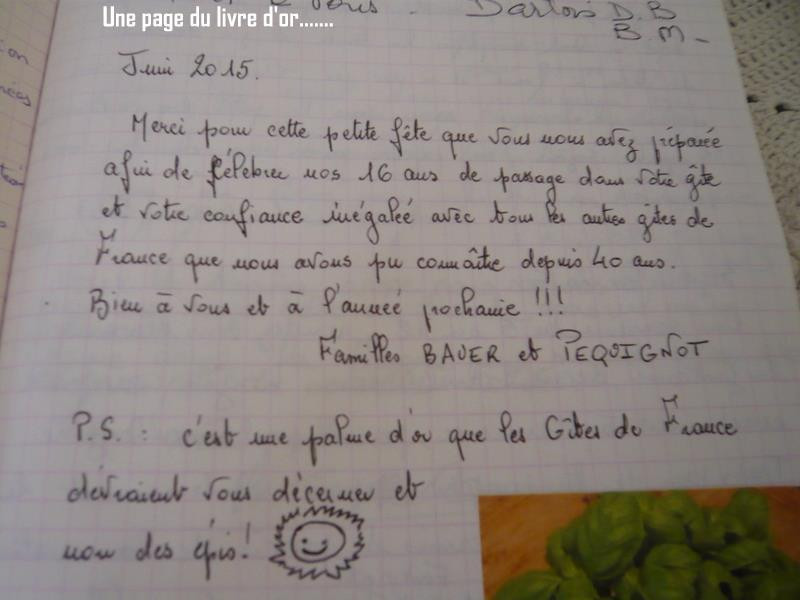 Une page du livre d'or.......
Dartois D.B
B.M-
Juin 2015.
Merci pour cette petite fête que vous nous avez préparée
afin de célébrer nos 16 ans de passage dans votre gîte
et votre confiance inégaleé avec tous les autres gîtes de
France que nous avons pu connaître depuis 40 ans.
Bien à vous et à l'anneé prochaine !!!
Familles BAUER et PEQUIGNOT
P.S.: c'est une palme d'or que les Gîtes de France
devraient vous décerner et
non des épis!